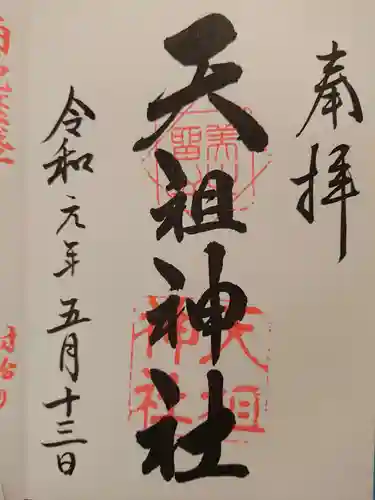 奉拝
天祖神社
天祖
神社
令和元年五月十三日